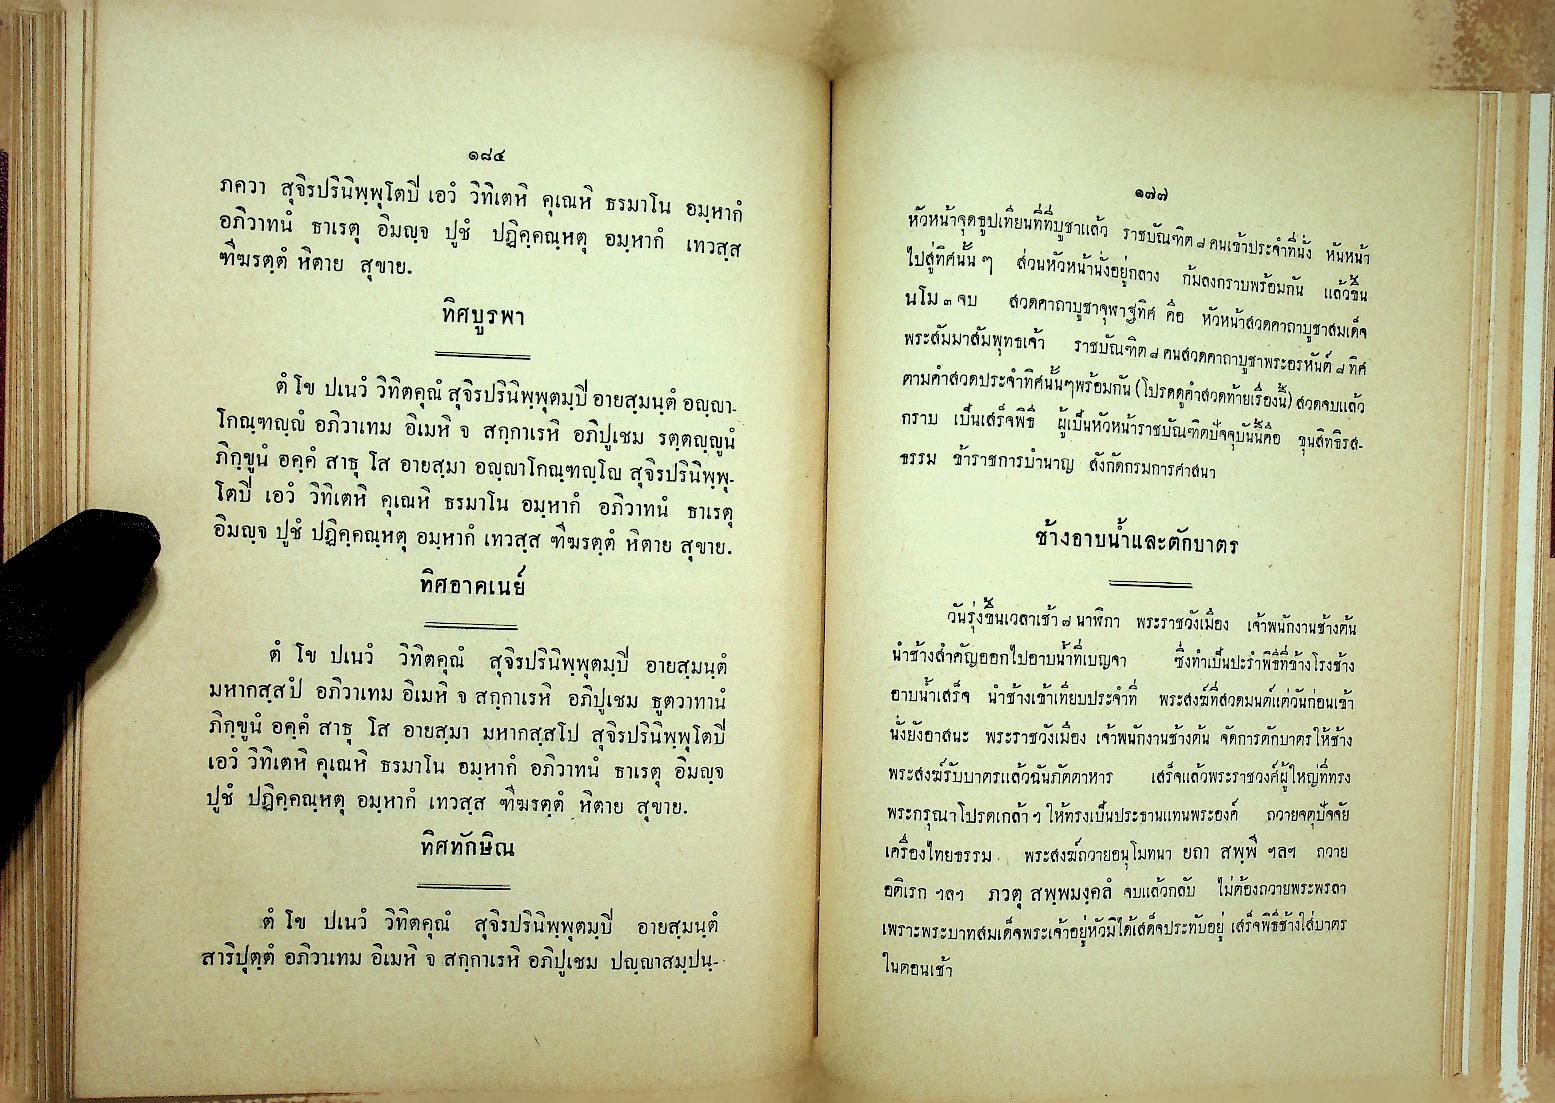 ๑๘๔
ภควา สุจิรปรินิพฺพุโตปิ เอวํ วิทิเตหิ คุเณหิ ธรมาโน อมฺหากํ
อภิวาทนํ ธาเรตุ อิมญฺจ ปูชํ ปฏิคฺคณฺหตุ อมฺหากํ เทวสฺส
ฑีฆรตฺตํ หิตาย สุขาย.
ทิศบูรพา
ตํ โข ปเนวํ วิทิตคุณํ สุจิรปรินิพฺพุตมฺปิ อายสฺมนฺตํ อญฺญา-
โกณฺฑญฺญํ อภิวาเทม อิเมหิ จ สกฺกาเรหิ อภิปูเชม รตฺตญฺญูนํ
ภิกฺขูนํ อคฺคํ สาธุ โส อายสฺมา อญฺญาโกณฺฑญฺโญ สุจิรปรินิพฺพุ-
โตปิ เอวํ วิทิเตหิ คุเณหิ ธรมาโน อมฺหากํ อภิวาทนํ ธาเรตุ
อิมญฺจ ปูชํ ปฏิคฺคณฺหตุ อมฺหากํ เทวสฺส ฑีฆรตฺตํ หิตาย สุขาย.
ทิศอาคเนย์
ตํ โข ปเนวํ วิทิตคุณํ สุจิรปรินิพฺพุตมฺปิ อายสฺมนฺตํ
มหากสฺสปํ อภิวาเทม อิเมหิ จ สกฺกาเรหิ อภิปูเชม ธูตวาทานํ
ภิกฺขูนํ อคฺคํ สาธุ โส อายสฺมา มหากสฺสโป สุจิรปรินิพฺพุโตปิ
เอวํ วิทิเตหิ คุเณหิ ธรมาโน อมฺหากํ อภิวาทนํ ธาเรตุ อิมญฺจ
ปูชํ ปฏิคฺคณฺหตุ อมฺหากํ เทวสฺส ฑีฆรตฺตํ หิตาย สุขาย.
ทิศทักษิณ
ตํ โข ปเนวํ วิทิตคุณํ สุจิรปรินิพฺพุตมฺปิ อายสฺมนฺตํ
สาริปุตฺตํ อภิวาเทม อิเมหิ จ สกฺกาเรหิ อภิปูเชม ปญฺญาสมฺปนฺ-
๑๗๗
หัวหน้าจุดธูปเทียนที่ที่บูชาแล้ว ราชบัณฑิต ๘ คนเข้าประจำที่นั่ง หันหน้า
ไปสู่ทิศนั้น ๆ ส่วนหัวหน้านั่งอยู่กลาง ก้มลงกราบพร้อมกัน แล้วขึ้น
นโม ๓ จบ สวดคาถาบูชาจุพาฐทิศ คือ หัวหน้าสวดคาถาบูชาสมเด็จ
พระสัมมาสัมพุทธเจ้า ราชบัณฑิต ๘ คนสวดคาถาบูชาพระอรหันต์ ๘ ทิศ
ตามคำสวดประจำทิศนั้นๆพร้อมกัน (โปรดดูคำสวดท้ายเรื่องนี้) สวดจบแล้ว
กราบ เป็นเสร็จพิธี ผู้เป็นหัวหน้าราชบัณฑิตปัจจุบันนี้คือ ขุนสิทธิรส-
ธรรม ข้าราชการบำนาญ สังกัดกรมการศาสนา
ช้างอาบน้ำและตักบาตร
วันรุ่งขึ้นเวลาเช้า ๗ นาฬิกา พระราชวังเมือง เจ้าพนักงานช้างต้น
นำช้างสำคัญออกไปอาบน้ำที่เบญจา ซึ่งทำเป็นปะรำพิธีที่ข้างโรงช้าง
อาบน้ำเสร็จ นำช้างเข้าเทียบประจำที่ พระสงฆ์ที่สวดมนต์แต่วันก่อนเข้า
นั่งยังอาสนะ พระราชวังเมือง เจ้าพนักงานช้างต้น จัดการตักบาตรให้ช้าง
พระสงฆ์รับบาตรแล้วฉันภัตตาหาร เสร็จแล้วพระราชวงศ์ผู้ใหญ่ที่ทรง
พระกรุณาโปรดเกล้า ฯ ให้ทรงเป็นประธานแทนพระองค์ ถวายจตุปัจจัย
เครื่องไทยธรรม พระสงฆ์ถวายอนุโมทนา ยถา สพฺพี ฯลฯ ถวาย
อดิเรก ฯลฯ ภวตุ สพฺพมงฺคลํ จบแล้วกลับ ไม่ต้องถวายพระพรลา
เพราะพระบาทสมเด็จพระเจ้าอยู่หัวมิได้เสด็จประทับอยู่ เสร็จพิธีช้างใส่บาตร
ในตอนเช้า